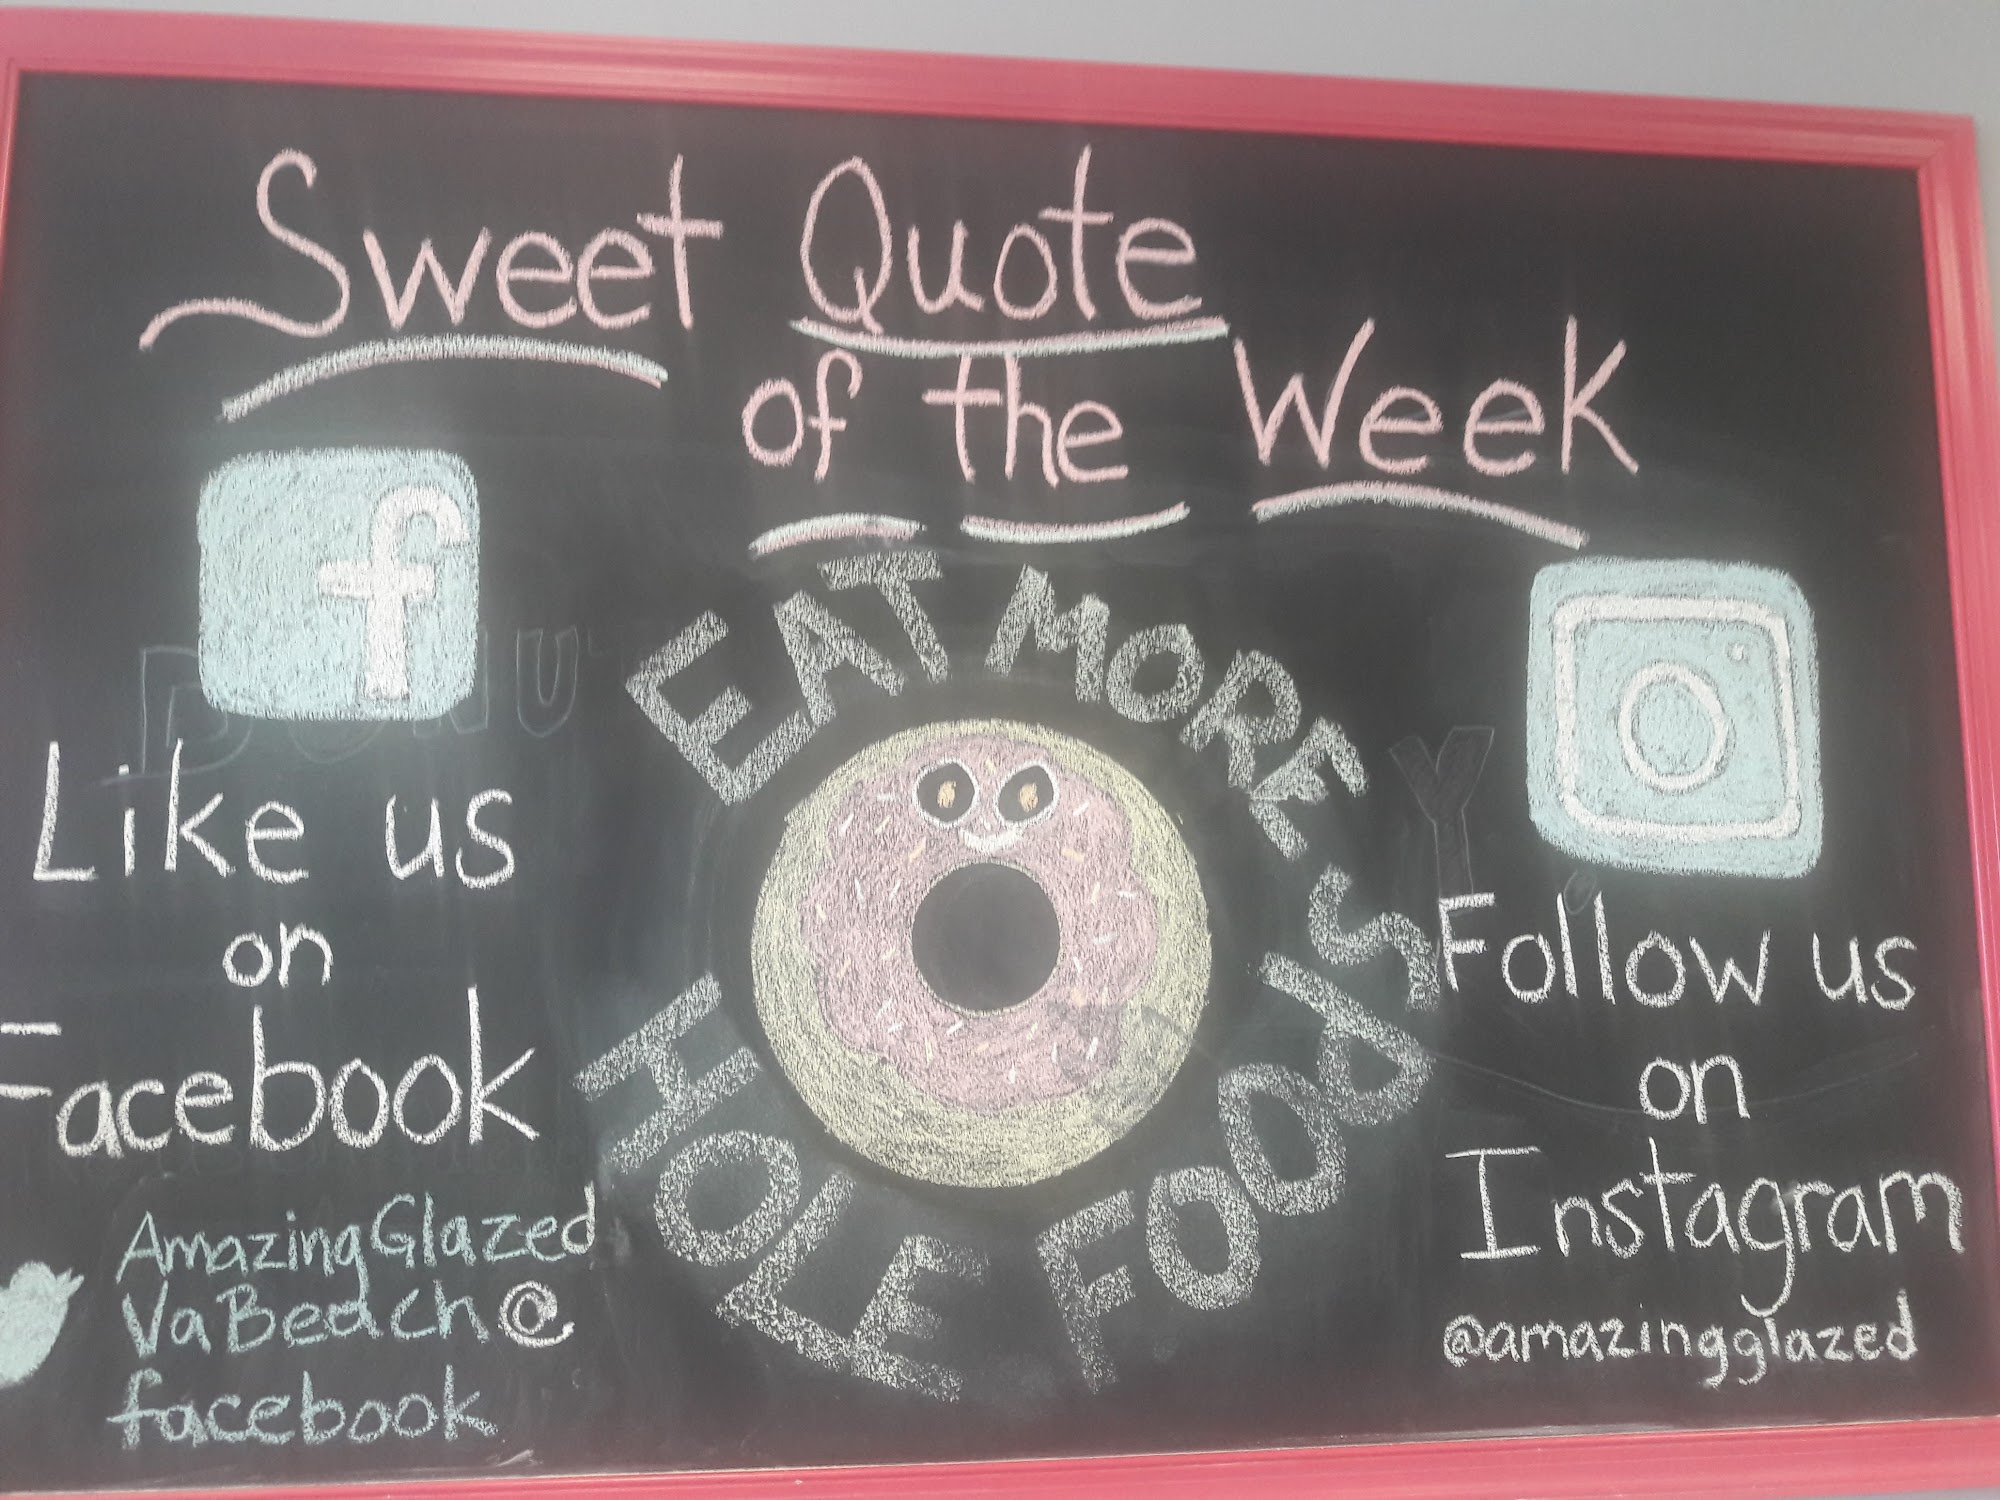 Sweet Quote
of the Week
f
EAT MORE
HOLE FOODS
Like us
on
Facebook
AmazingGlazed
VaBeach@
facebook
Follow us
on
Instagram
@amazingglazed
DONU
Y